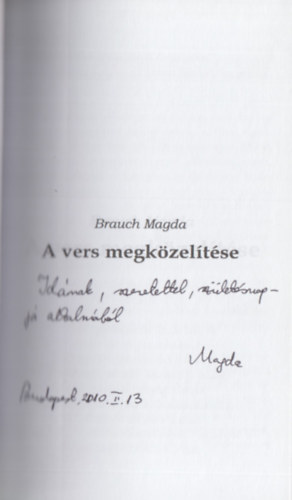 Brauch Magda
A vers megközelítése
Idának, szeretettel, születésnap-
ja alkalmából
Magda
Budapest, 2010. II. 13